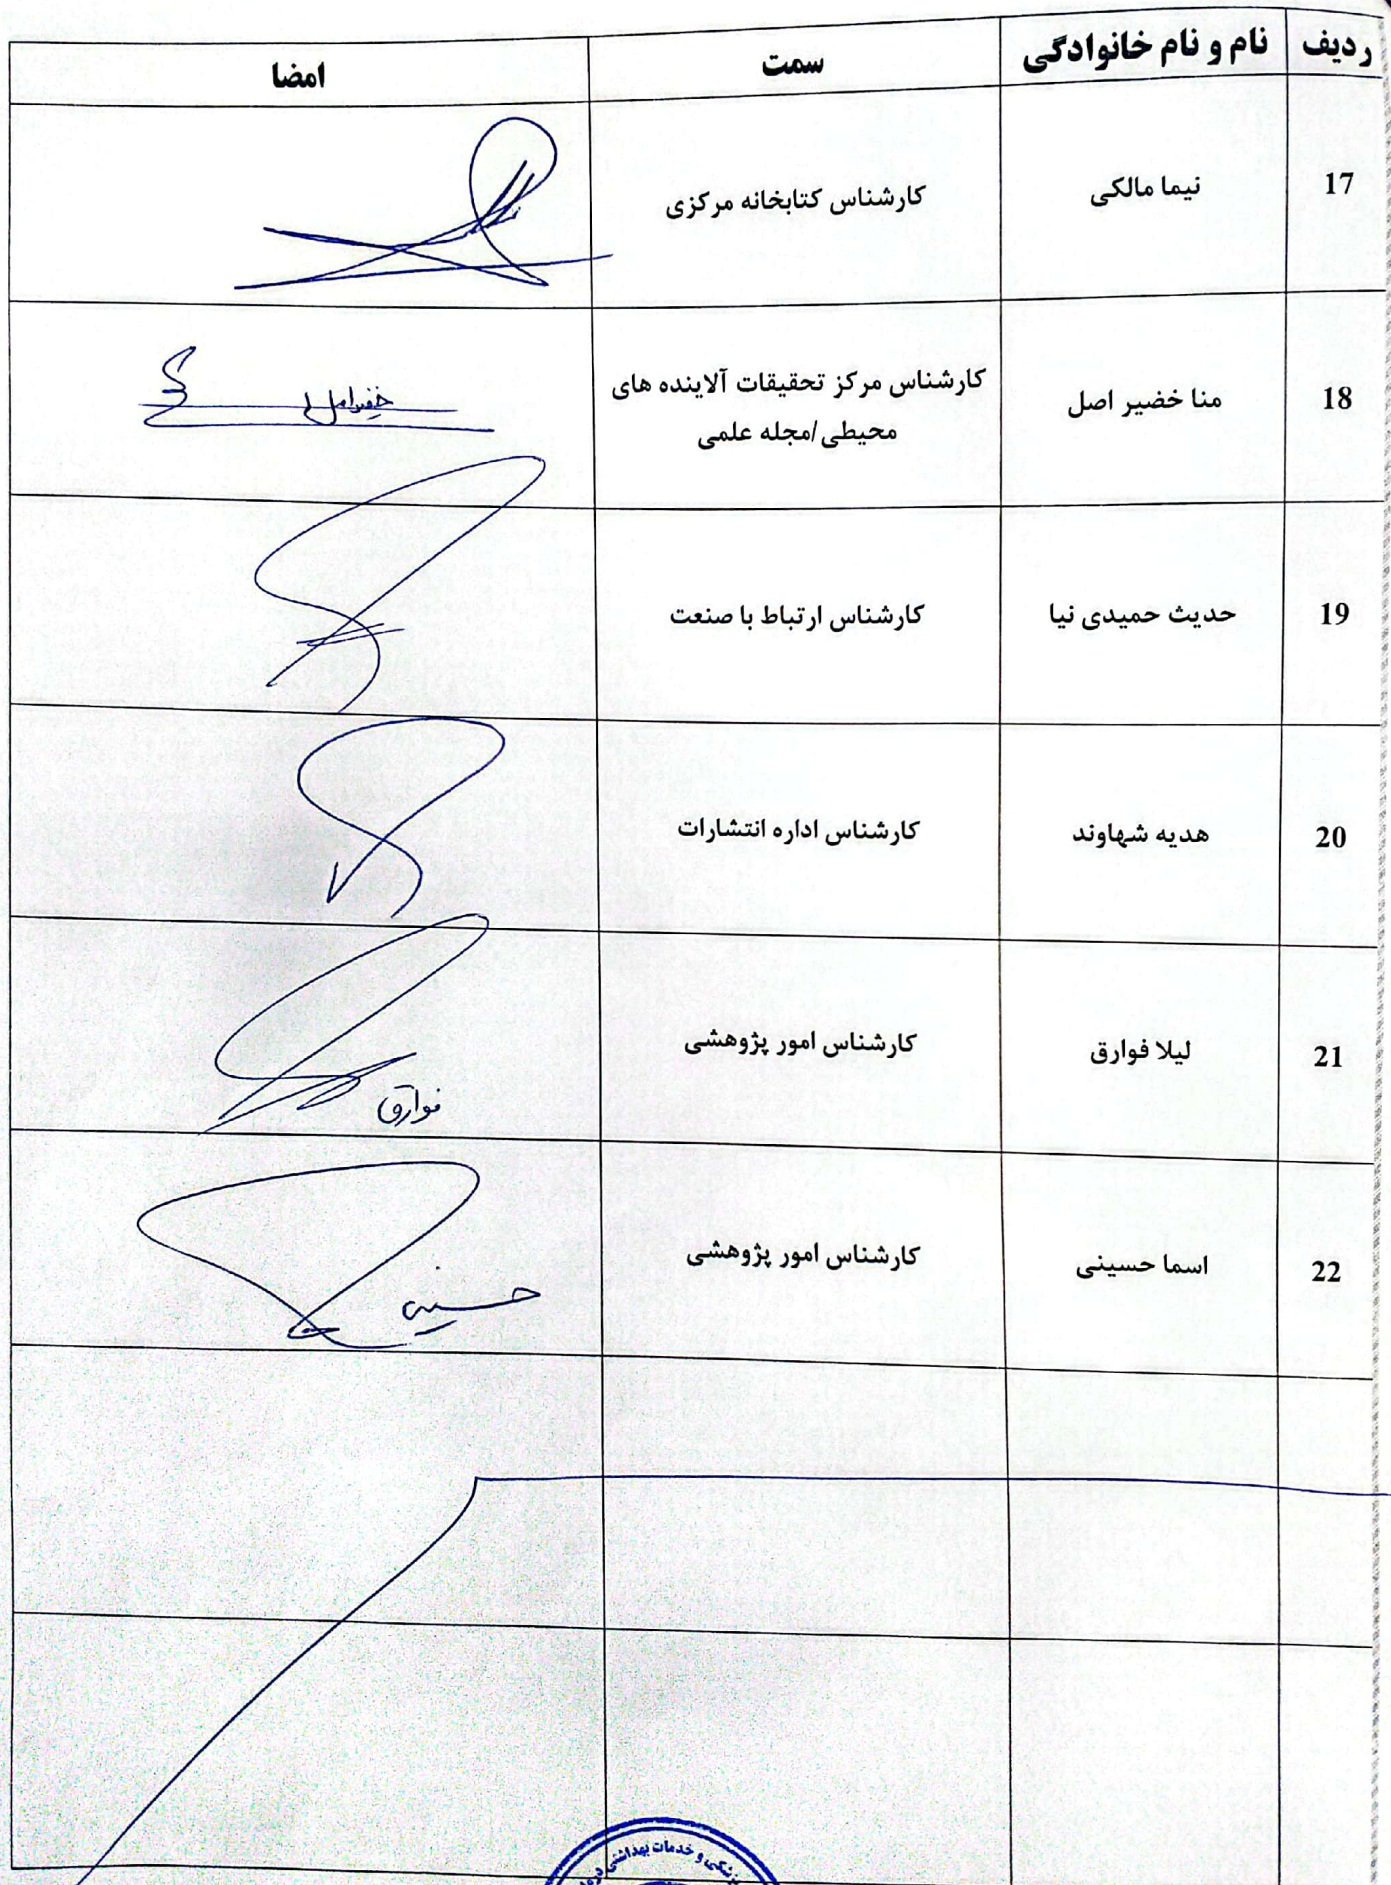 ردیف نام و نام خانوادگی سمت امضا
17 نیما مالکی کارشناس کتابخانه مرکزی
18 منا خضیر اصل کارشناس مرکز تحقیقات آلاینده های
محیطی/مجله علمی
خضیراصل
19 حدیث حمیدی نیا کارشناس ارتباط با صنعت
20 هدیه شهاوند کارشناس اداره انتشارات
21 لیلا فوارق کارشناس امور پژوهشی
فوارق
22 اسما حسینی کارشناس امور پژوهشی
حسینی
پزشکی و خدمات بهداشتی